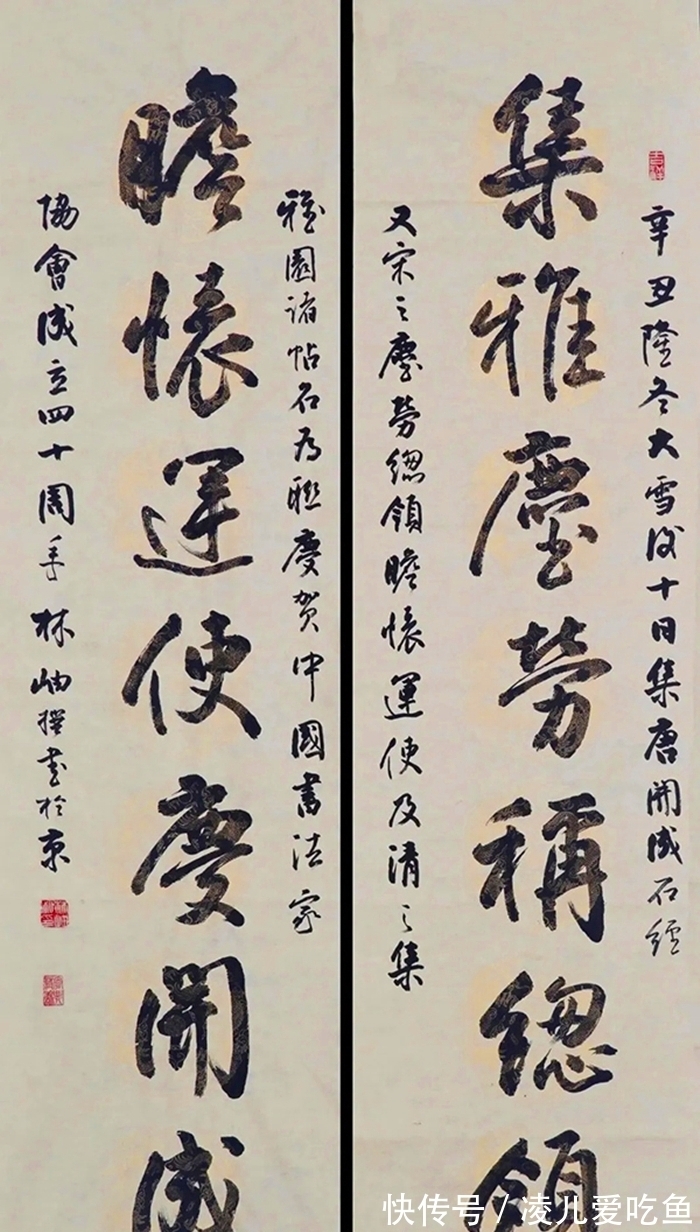 集雅塵勞稱總領
辛丑隆冬大雪後十日集唐開成石經
又宋之塵勞總領瞻懷運使及清之集
瞻懷運使慶開成
雅園諸帖名為聯慶賀中國書法家
協會成立四十周年林岫撰書於京
快传号/凌儿爱吃鱼